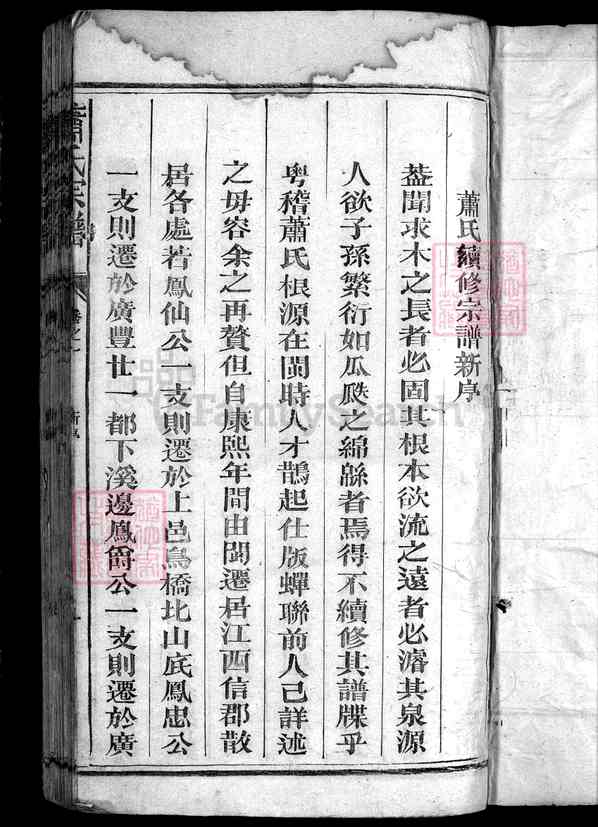 蕭氏續修宗譜新序
葢聞求木之長者必固其根本欲流之遠者必濬其泉源
人欲子孫繁衍如瓜瓞之綿緜者焉得不續修其譜牒乎
粤稽蕭氏根源在閩時人才鵲起仕版蟬聯前人已詳述
之毋容余之再贅但自康熙年間由閩遷居江西信郡散
居各處若鳳仙公一支則遷於上邑烏橋北山底鳳忠公
一支則遷於廣豐廿一都下溪邊鳳爵公一支則遷於廣
蕭氏宗譜
卷之一
新序
FamilySearch